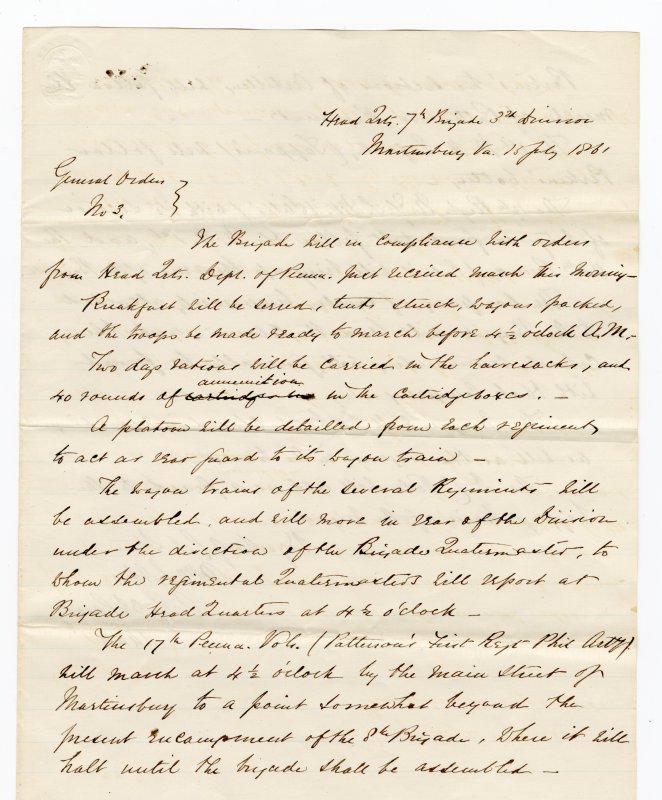 Head Qrs. 7th Brigade 3rd Division
Martinsburg Va. 15 July 1861
General Orders
No 3.
The Brigade will in compliance with orders
from Head Qrs. Dept. of Penna. just received march this morning—
Breakfast will be served, tents struck, wagons packed,
and the troops be made ready to march before 4½ o'clock A.M.—
Two days rations will be carried in the haversacks, and
ammunition
40 rounds of cartridges in the cartridgeboxes. —
A platoon will be detailled from each regiment,
to act as rear guard to its wagon train —
The wagon trains of the several Regiments will
be assembled, and will move in rear of the Division
under the direction of the Brigade Quatermaster, to
whom the regimental Quatermasters will report at
Brigade Head Quarters at 4½ o'clock —
The 17th Penna. Vols. (Patterson's First Regt Phil Arty)
will march at 4½ o'clock by the main street of
Martinsburg to a point somewhat beyond the
present encampment of the 8th Brigade, where it will
halt until the brigade shall be assembled —